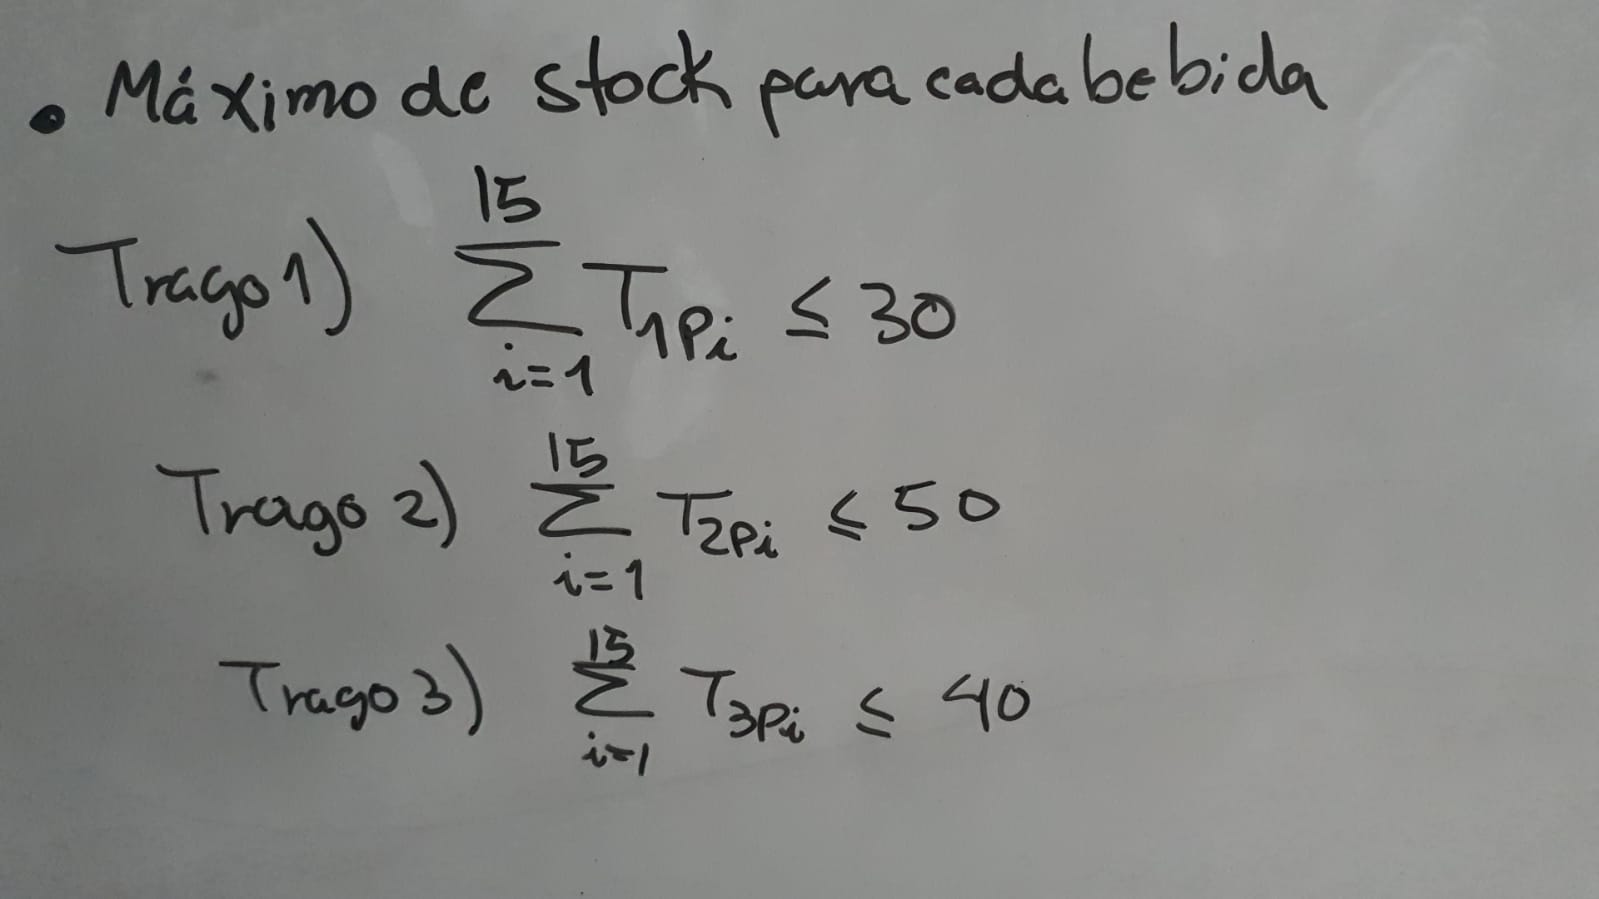 • Máximo de stock para cada bebida
Trago 1) 15 ∑ i=1 T₁Pi ≤ 30
Trago 2) 15 ∑ i=1 T₂Pi ≤ 50
Trago 3) 15 ∑ i=1 T₃Pi ≤ 40